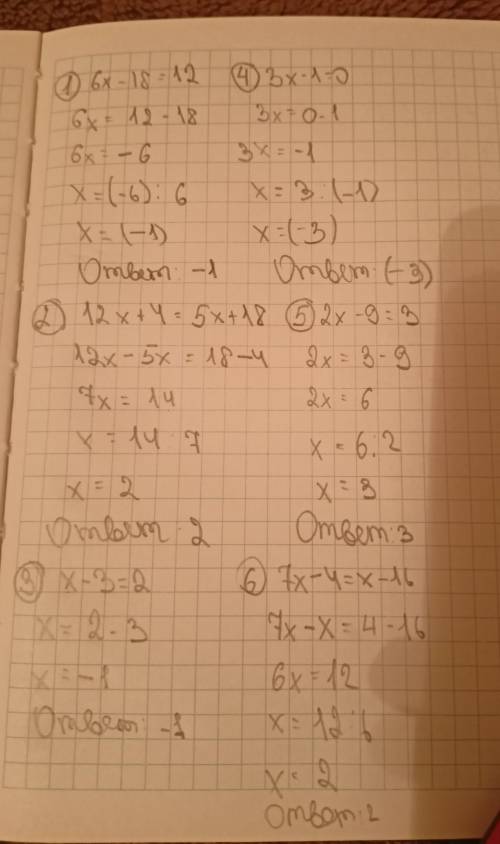 ① 6x - 18 = 12
6x = 12 - 18
6x = - 6
x = (-6) : 6
x = (-1)
Ответ: -1
② 12x + 4 = 5x + 18
12x - 5x = 18 - 4
7x = 14
x = 14 : 7
x = 2
Ответ: 2
③ x - 3 = 2
x = 2 - 3
x = -1
Ответ: -1
④ 3x - 1 = 0
3x = 0 - 1
3x = -1
x = 3 : (-1)
x = (-3)
Ответ: (-3)
⑤ 2x - 9 = 3
2x = 3 - 9
2x = 6
x = 6 : 2
x = 3
Ответ: 3
⑥ 7x - 4 = x - 16
7x - x = 4 - 16
6x = 12
x = 12 : 6
x = 2
Ответ: 2